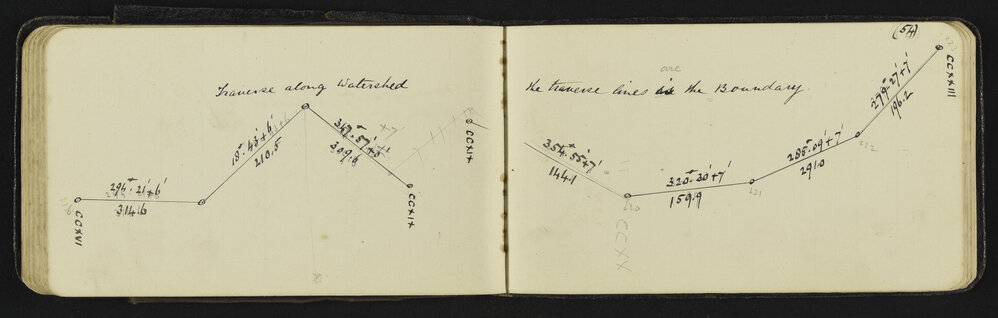 (54)
Traverse along Watershed
the traverse lines are the Boundary.
294° 21' + 6'
314.6
18° 43' + 6'
210.5
347° 57' + 6'
309.6
+7'
354° 55' + 7'
144.1
320° 30' + 7'
159.9
285° 09' + 7'
291.0
279° 27' + 7'
196.2
CCXVI
CCXIX
CCXIX
CCXX
CCXXIII
220
221
222
223